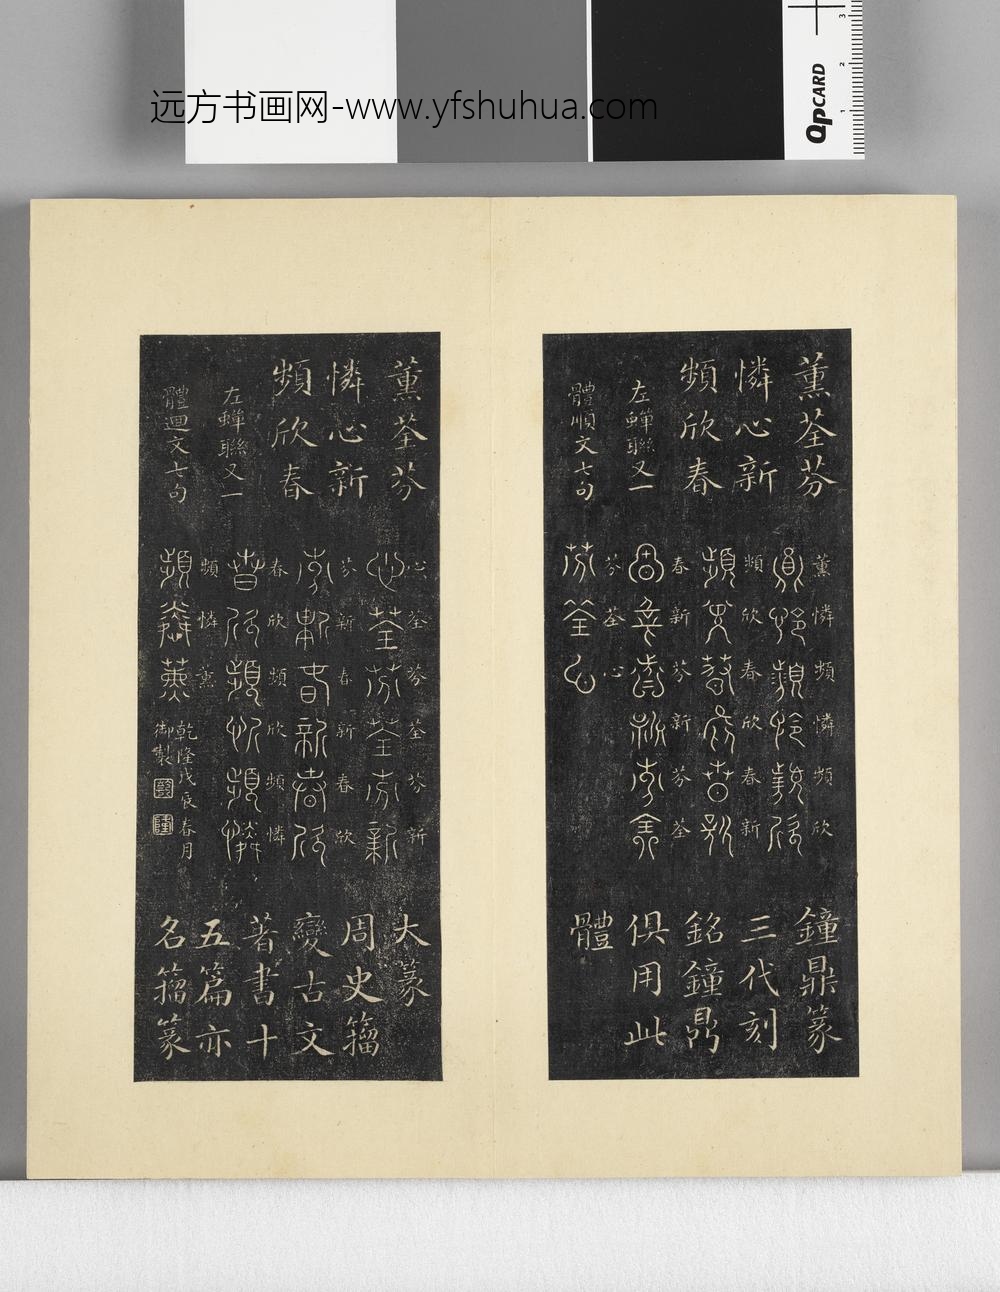 远方书画网-www.yfshuhua.com
QPCARD
1
2
3
薰荃芬
憐心新
頻欣春
左蟬聯又一
體順文七句
薰憐頻憐頻欣
頻欣春欣春新
春新芬新芬荃
芬荃心
鐘鼎篆
三代刻
銘鐘鼎
俱用此
體
薰荃芬
憐心新
頻欣春
左蟬聯又一
體迴文七句
心荃芬荃芬新
芬新春新春欣
春欣頻欣頻憐
頻憐薰
乾隆戊辰春月
御製
大篆
周史籀
變古文
著書十
五篇亦
名籀篆